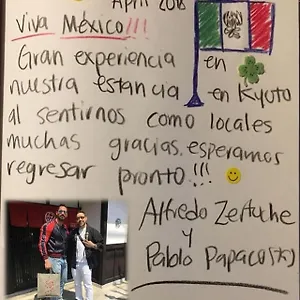 April 2018
Viva México!!!
Gran experiencia en
nuestra estancia en Kyoto
al sentirnos como locales
muchas gracias. esperamos
regresar pronto!!!
Alfredo Zertuche
y
Pablo Papaco(π)